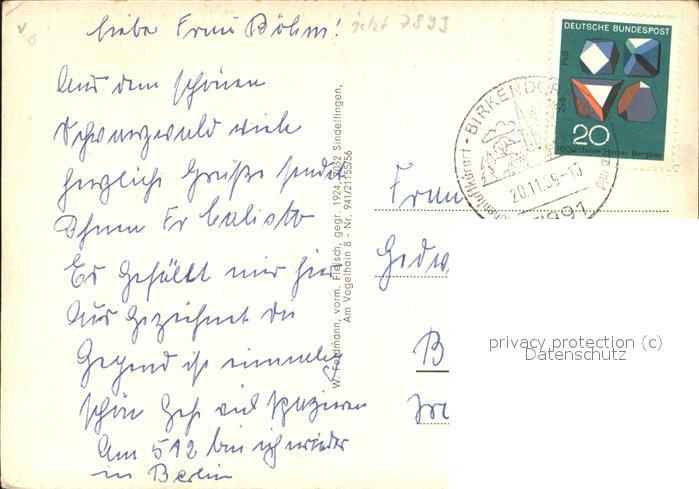 liebe Frau Böhm!
jetzt 7899
Aus dem schönen
Schwarzwald viele
herzliche Grüße sendet
Ihnen Fr Calisto
Es gefällt mir hier
Aus gezeichnet die
Gegend ist einmalig
schön Geh viel spazieren
Am 5 12 bin ich wieder
in Berlin
W. Fehrmann, vorm. Fleisch, gegr. 1924, 7032 Sindelfingen,
Am Vogelhain 8 - Nr. 941/21155/56
DEUTSCHE BUNDESPOST
PbS
ZnS
20
1000 Jahre Harzer Bergbau
BIRKENDORF
20.11.69-13
7891
Frau
B
privacy protection (c)
Datenschutz